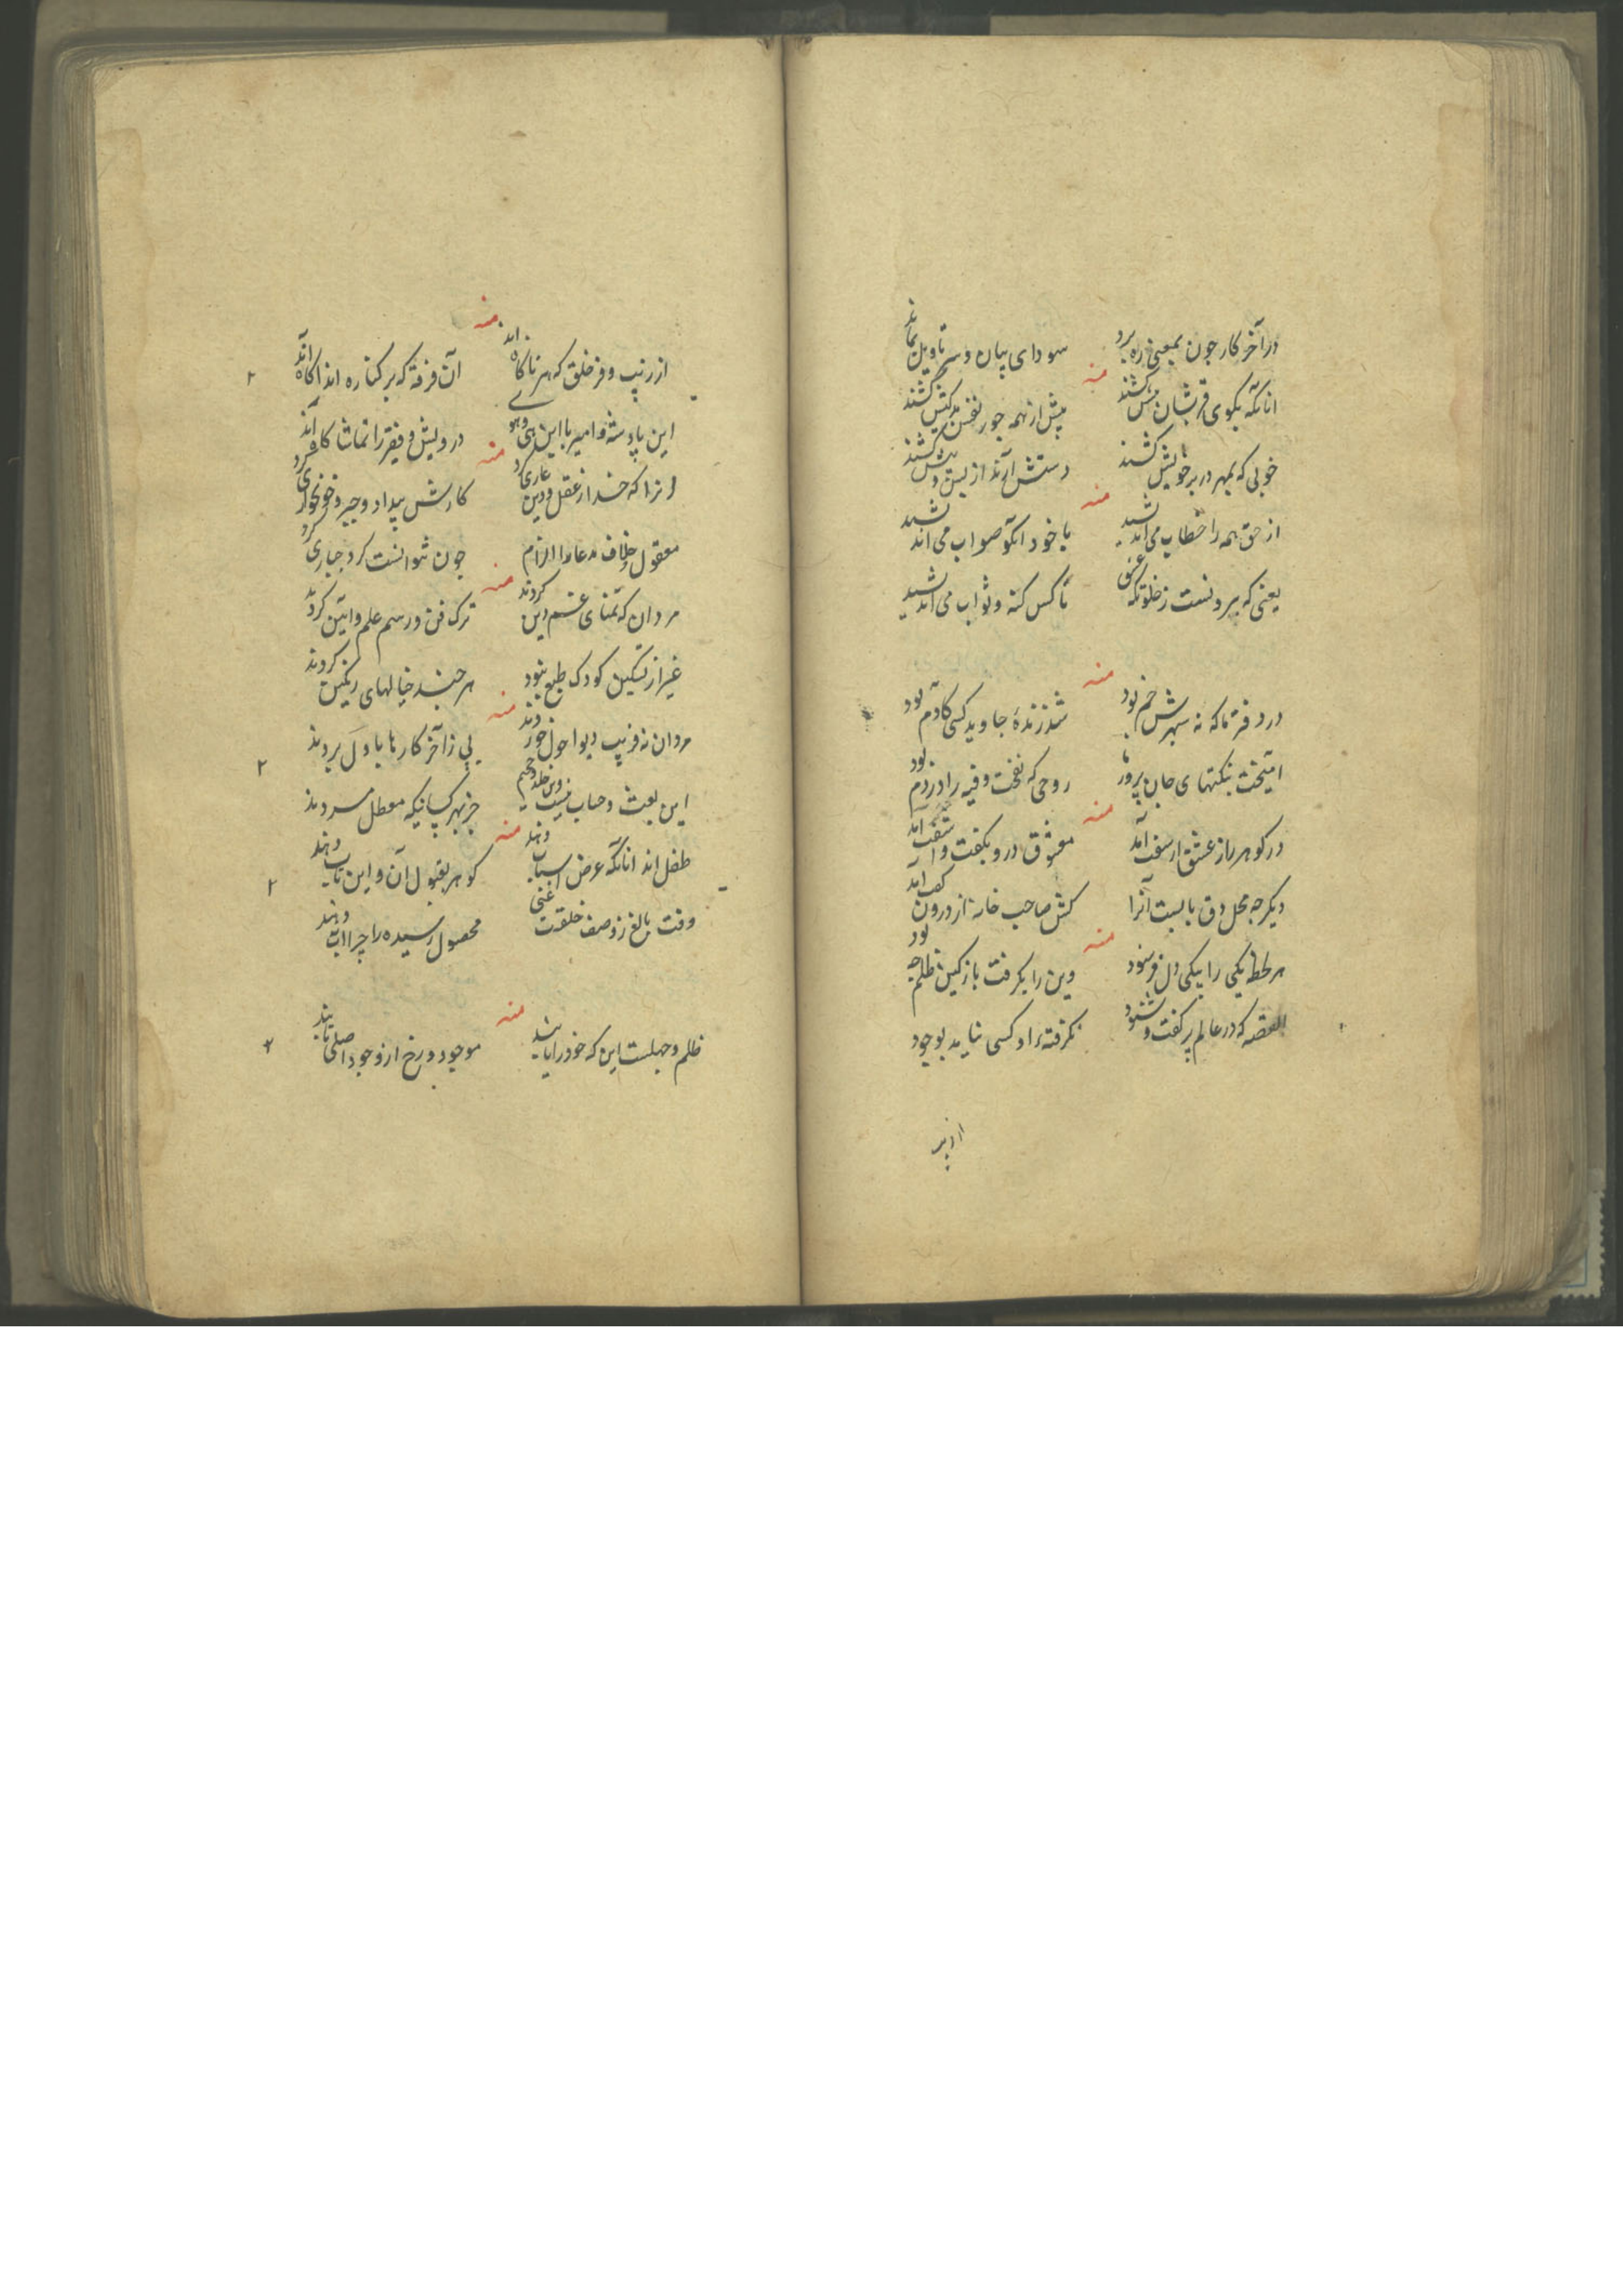 در آخر کار چون بمعنی ره برد سودای بیان و سر تاویل نماند
منه
آنانکه بکوی قربشان پیش کشند پیش از همه جور نفس بدکیش کشند
خوبی که بمهر در بر خویش کشند دستش آرند از پس و پیش کشند
منه
از حق همه را خطاب می‌اندیشید با خود آنکو صواب می‌اندیشید
یعنی که برونست ز خلوتکه عشق تا کس کنه و ثواب می‌اندیشید
منه
در دفتر ما که نه سپهرش خم بود شد زندهٔ جاوید کسی کادم بود
آمیخت بنکتهای جان پرور ما روحی که نفخت فیه را در دم بود
منه
در کوهر راز عشق ار سفت آمد معشوق درو بکفت و اشفت آمد
دیکر چه محل دق بابست آنرا کش صاحب خانه از درون کفت آمد
منه
هر لحظه یکی را بیکی دل فرسود وین را بکرفت باز کین ظلم چه بود
القصه که در عالم پر کفت و شنود نکرفته مراد کسی نامد بوجود
از زیب
منه
از زیب و فر خلق که هر ناکاه‌اند آن فرقه که بر کناره‌اند آکاه‌اند
این پادشه و امیر با این هی و هوی درویش و فقیر را تماشاکاه‌اند
منه
آنرا که خدا ز عقل و دین عاری کرد کارش بیداد و جبر و خونخواری کرد
معقول خلاف مدعا را الزام چون نتوانست کرد جباری کرد
منه
مردان که تمنای غم دین کردند ترک فن و رسم علم و آیین کردند
غیر از تسکین کودک طبع نبود هر چند خیالهای رنکین کردند
منه
مردان نه فریب دیو احول خوردند پی ز آخر کارها باول بردند
این بعث و حساب نیست وین خلد و جحیم جز بهر کسانیکه معطل مردند
منه
طفل‌اند آنانکه عرض اسباب دهند کوهر بقبول آن و این تاب دهند
وقت بالغ ز وصف خلقت غنی محصول رسیده را چرا آب دهند
منه
ظلم و جهلست این که خود را یابند موجود و رخ از وجود اصلی تابند